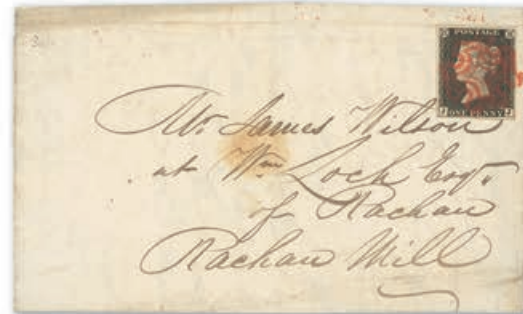 POSTAGE
J J
ONE PENNY
Mr. James Wilson
at Wm Loch Esqr.
of Rachan
Rachan Mill